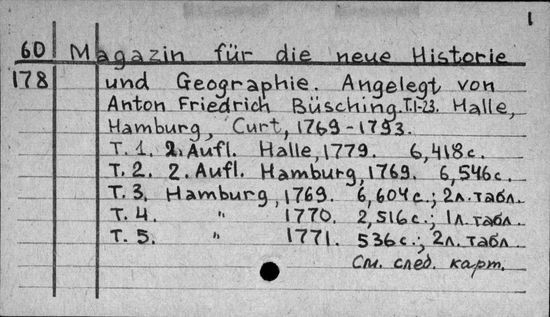 1
60 Magazin für die neue Historie
178 und Geographie. Angelegt von
Anton Friedrich Büsching. T.1-23. Halle,
Hamburg, Curt, 1769-1793.
Т. 1. 2. Aufl. Halle, 1779. 6,418 с.
Т. 2. 2. Aufl. Hamburg, 1769. 6,546 с.
Т. 3. Hamburg, 1769. 6,604 с.; 2 л. табл.
Т. 4. " 1770. 2,516 с.; 1 л. табл.
Т. 5. " 1771. 536 с.; 2 л. табл
См. след. карт.